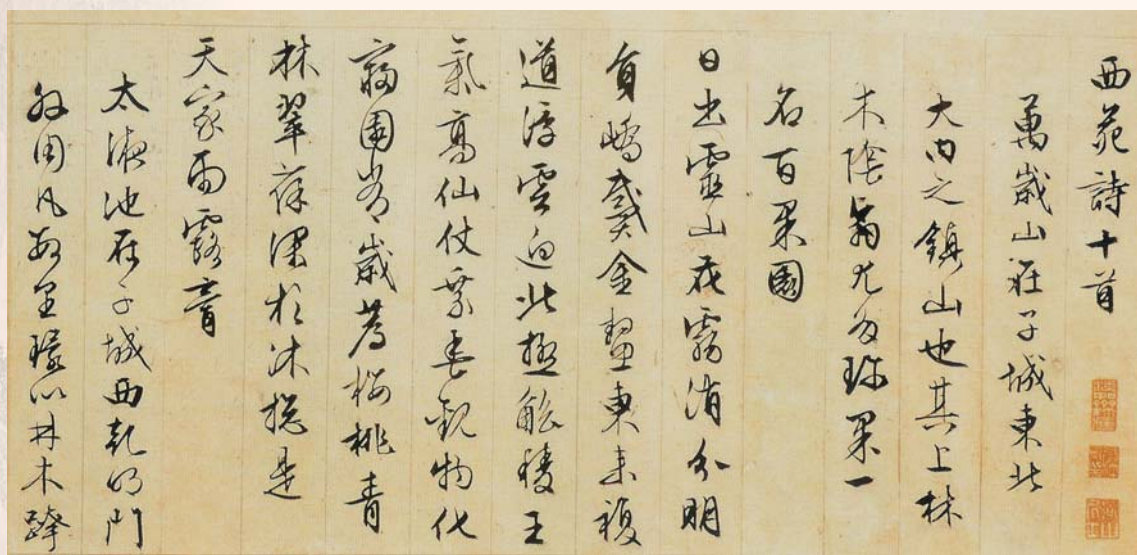 西苑詩十首
萬歲山在子城東北
大内之鎮山也其上林
木陰翳尤多珍果一
名百果園
日出靈山花霧消分明
員嶠戴金鰲東來複
道浮雲迥北極觚稜王
氣高仙仗乘春觀物化
寢園常歲薦櫻桃青
林翠葆深於沐總是
天家雨露膏
太液池在子城西乾明門
外周凡數里環以林木跨